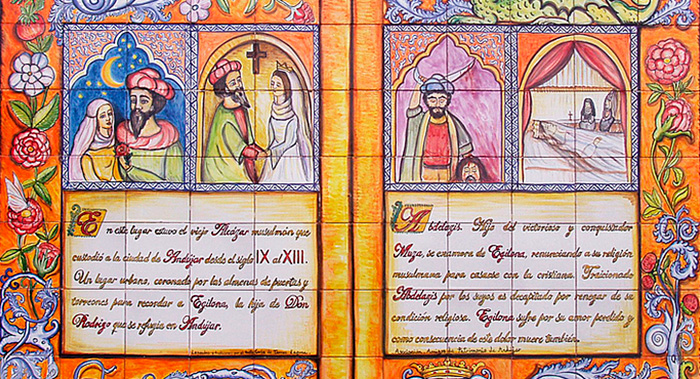 En este lugar estuvo el viejo Alcázar musulmán que
custodió a la ciudad de Andújar desde el siglo IX al XIII.
Un lugar urbano, coronado por las almenas de puertas y
torreones para recordar a Egilona, la hija de Don
Rodrigo que se refugia en Andújar.
Abdelazis. Hijo del victorioso y conquistador
Muza, se enamora de Egilona, renunciando a su religión
musulmana para casarse con la cristiana. Traicionado
Abdelazis por los suyos es decapitado por renegar de su
condición religiosa. Egilona sufre por su amor perdido y
como consecuencia de este dolor muere también.
Asociación Amigos de Patrimonio de Andújar